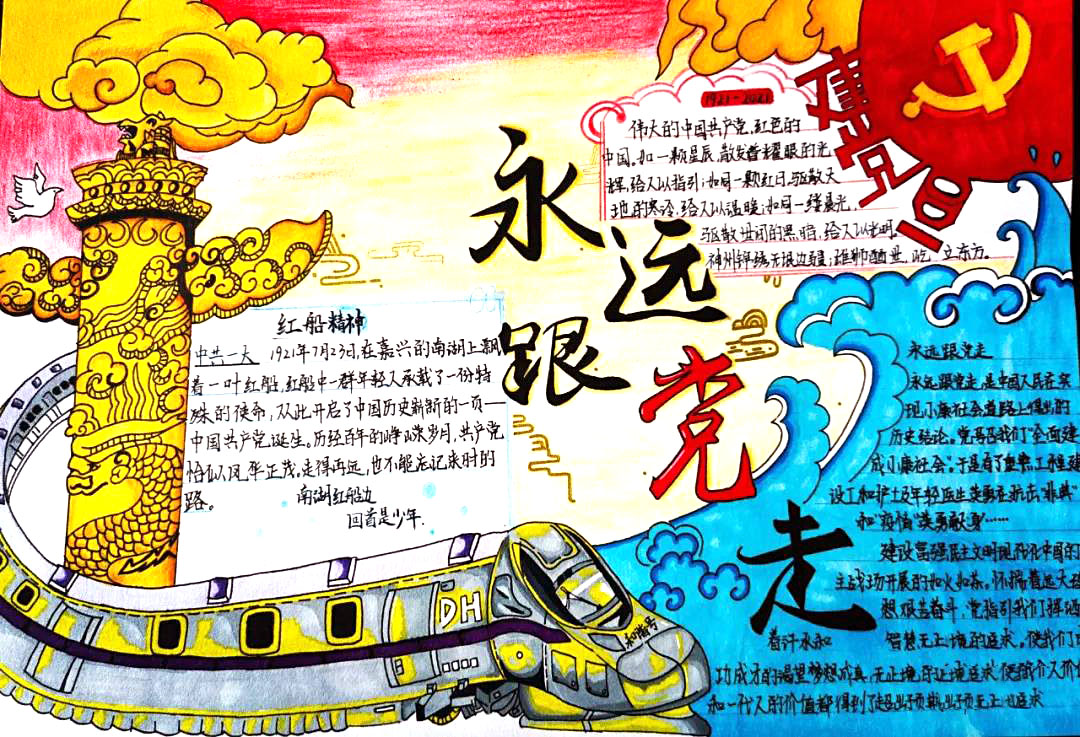 建党百
1921-2021
伟大的中国共产党,红色的
中国。如一颗星辰,散发着耀眼的光
辉,给人以指引;如同一颗红日,驱散大
地的寒冷,给人以温暖;如同一缕晨光,
驱散世间的黑暗,给人以光明。
神州锦绣无限边疆;雄狮 立东方。
永远跟党走
红船精神
中共一大 1921年7月23日,在嘉兴的南湖上飘
着一叶红船,红船中一群年轻人承载了一份特
殊的使命,从此开启了中国历史崭新的一页—
中国共产党诞生。历经百年的峥嵘岁月,共产党
恰似风华正茂。走得再远,也不能忘记来时的
路。
南湖红船边
回首是少年.
永远跟党走
永远跟党走,是中国人民在实
现小康社会道路上得出的
历史结论。党号召我们"全面建
成小康社会",于是有了 工程建
设工和护士及年轻医生英勇在抗击"非典"
和"疫情"英勇献身……
建设富强民主文明现代化中国的
主战场开展的如火如荼。怀揣着远大理
想艰苦奋斗,党指引我们挥洒
着汗水和 智慧无止境的追求,使我们
功成才的渴望梦想成真,无止境的 追求使我们人价
和一代人的价值都得到了
DH
和谐号